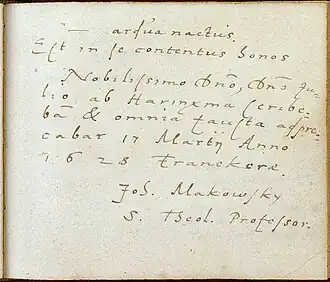 — ardua nactus.
Est in se contentus honos
Nobilissimo Dno, Dno Ju-
lio ab Harinxma scribe-
bā & omnia fausta adpre-
cabar 17 Martij Anno
1628 Franckeræ.
Joh. Makowsky
S. Theol. Professor.